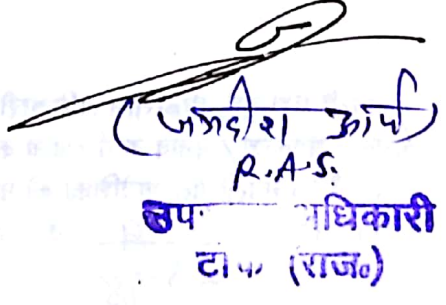 (जगदीश आर्य)
R.A.S.
उप अधिकारी
(राज०)